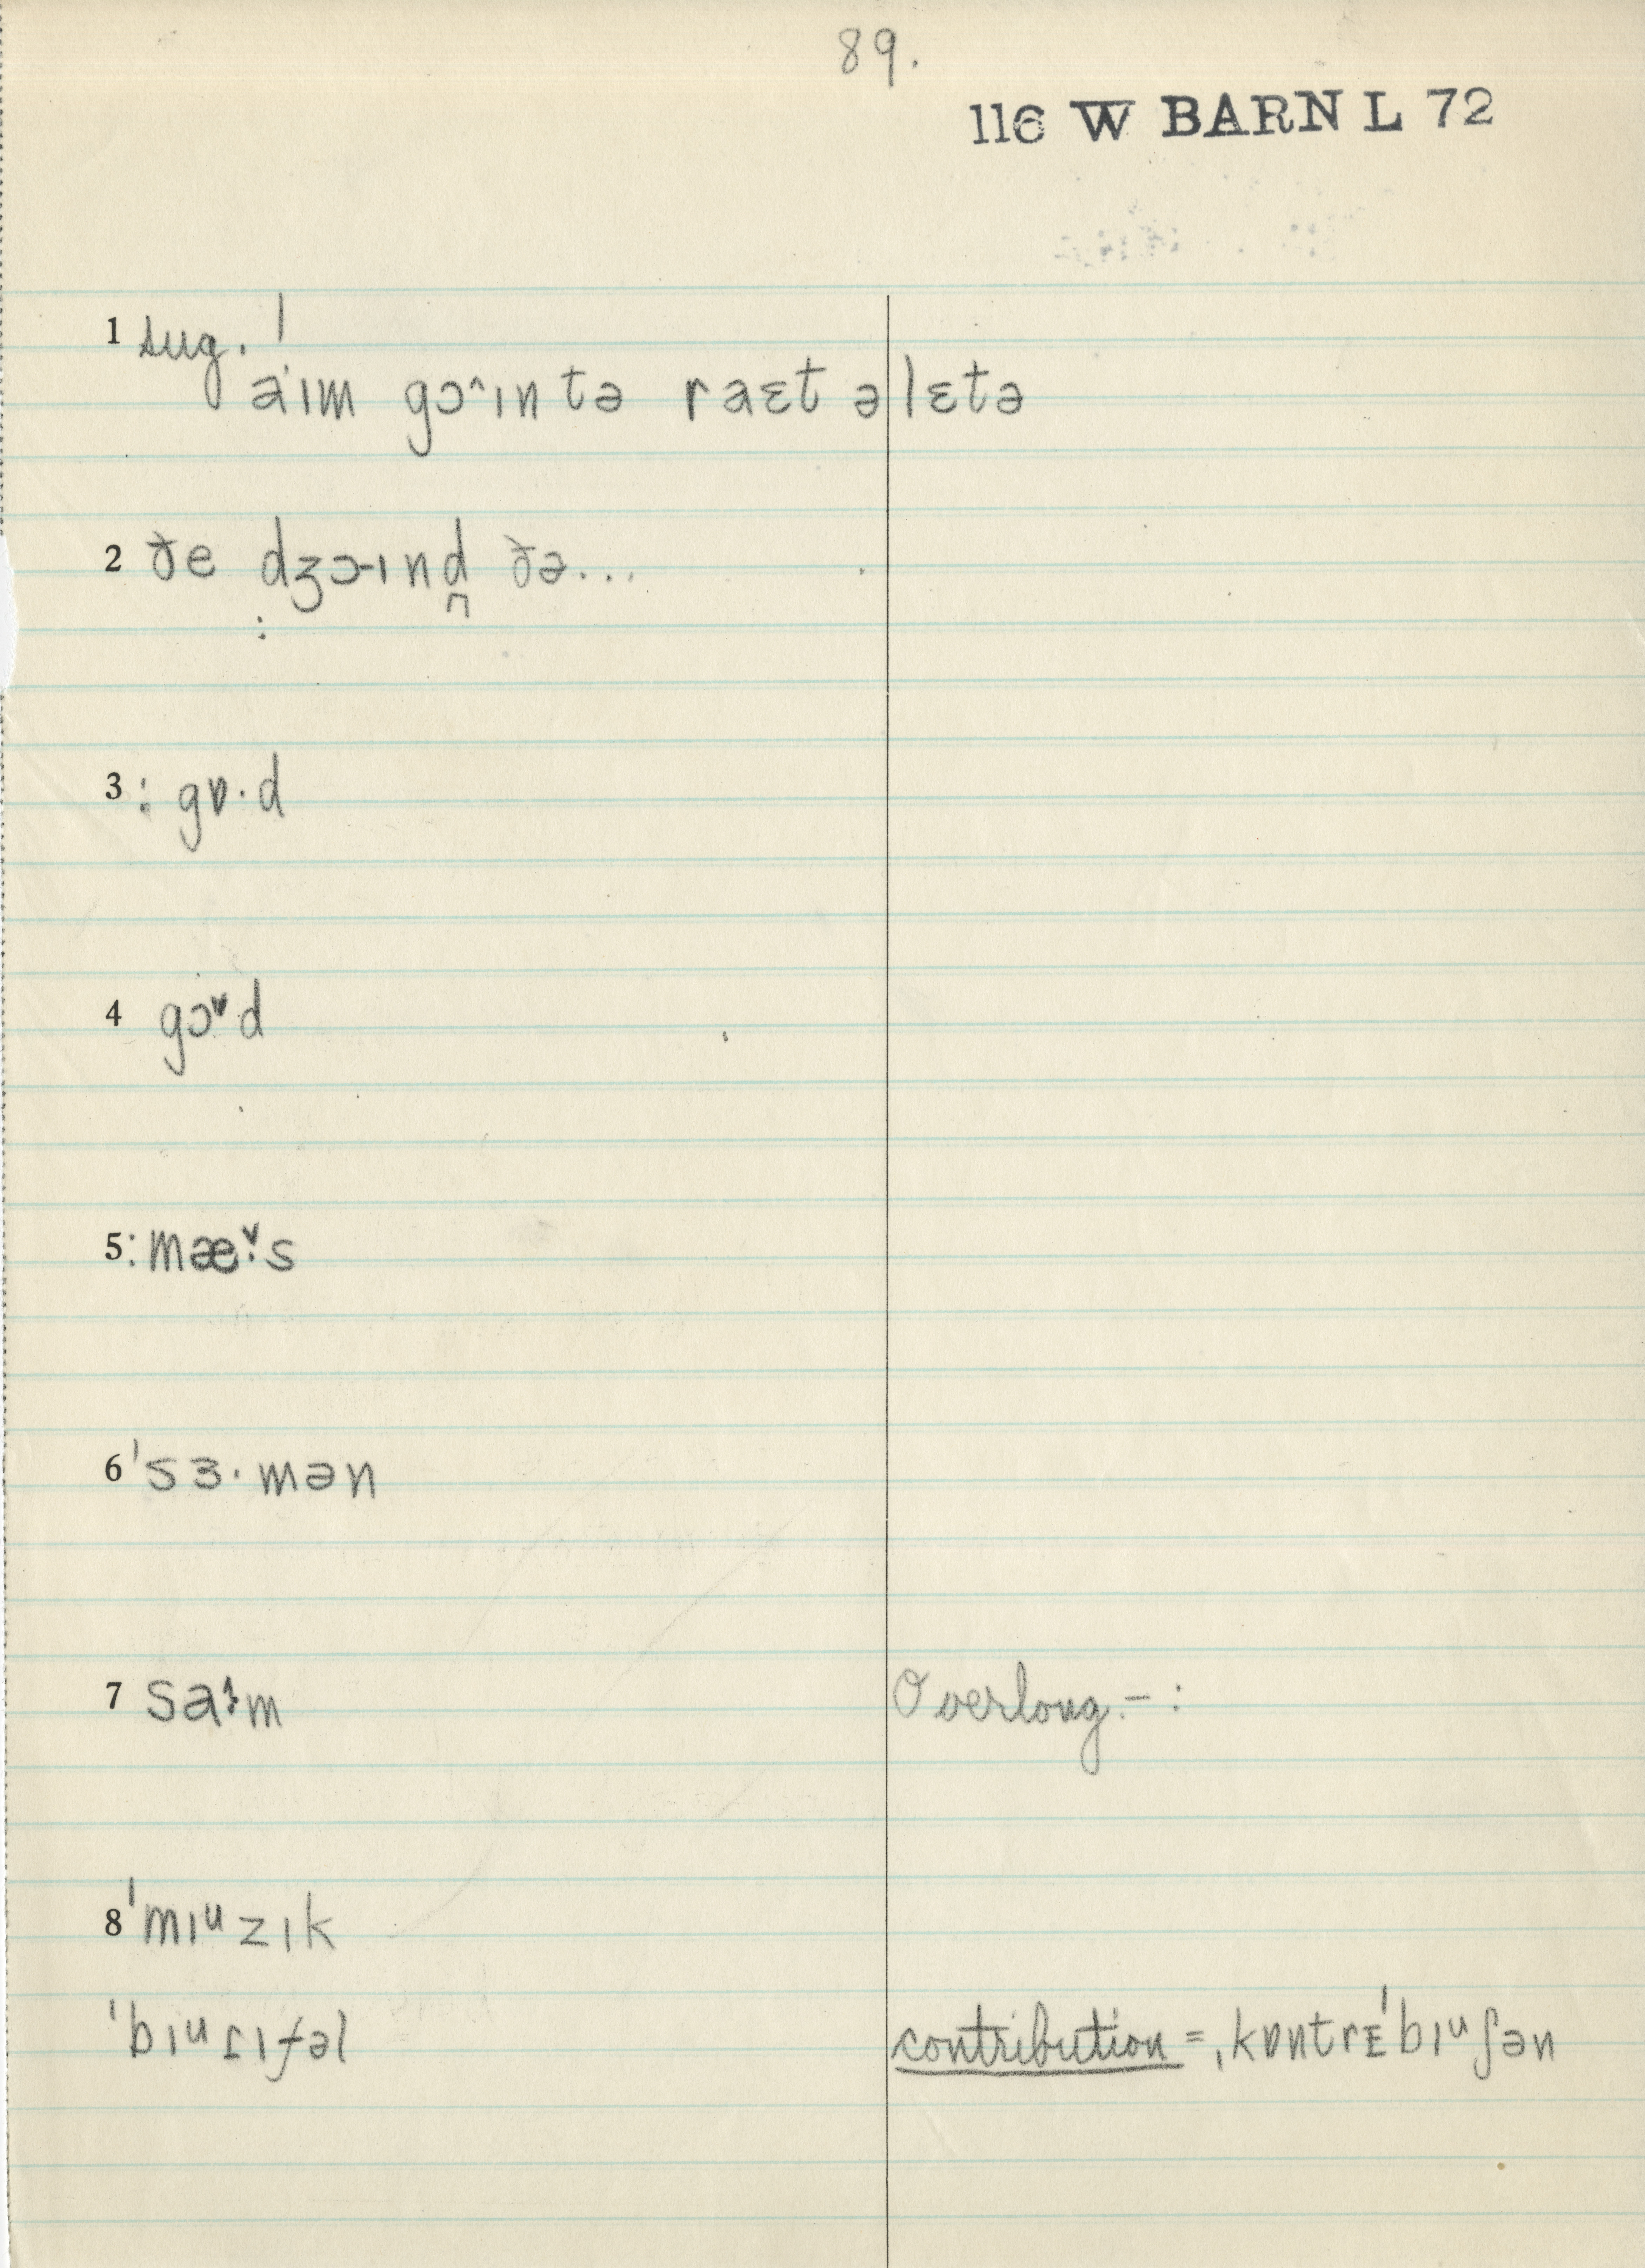 89.
116 W BARN L 72
1 sug. !
a·ɪm gɔ^ɪn tə raɛt ə lɛtə
2 ðe dʒɔ-ɪnd̪ ðə...
:
3 : gɒ·d
4 gɔˇd
5 : mæˇ·s
6 'sɜ·mən
7 sa:m Overlong. – :
8 'mɪᵘzɪk
'bɪᵘɾɪfəl contribution = ˌkɒntrᴇ'bɪᵘʃən